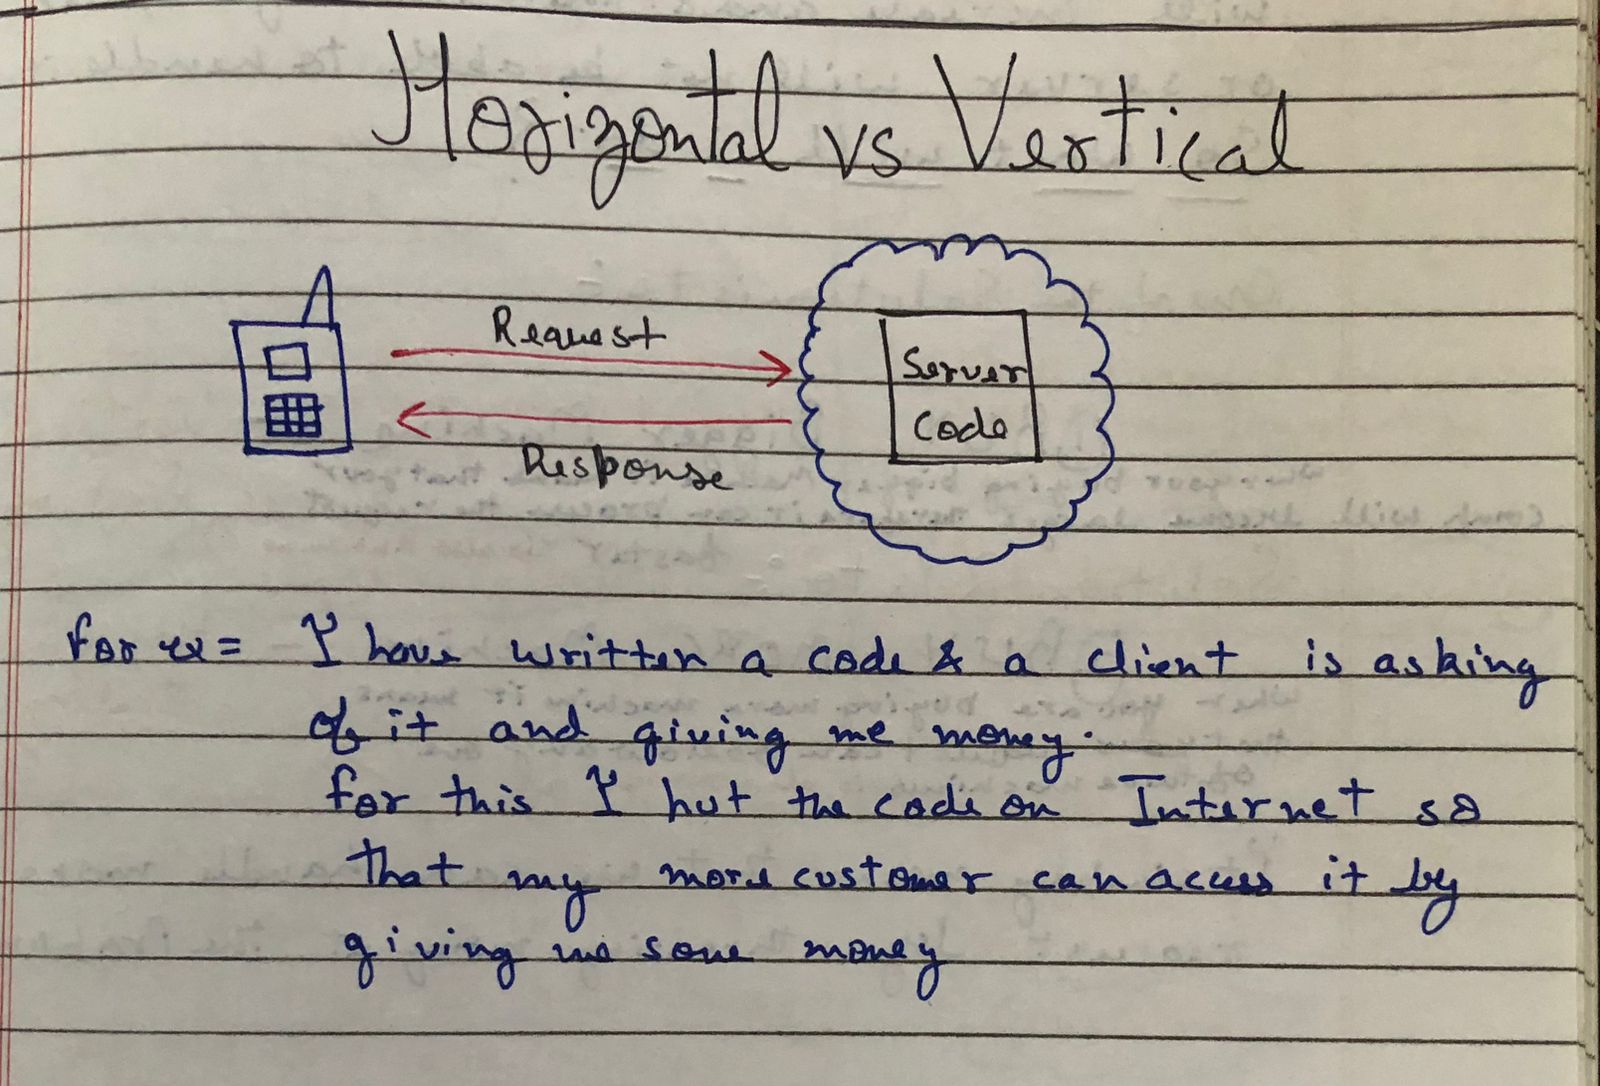 Horizontal vs Vertical
Request
Server
Code
Response
for ex = I have written a code & a client is asking
of it and giving me money.
for this I put the code on Internet so
that my more customer can access it by
giving me some money